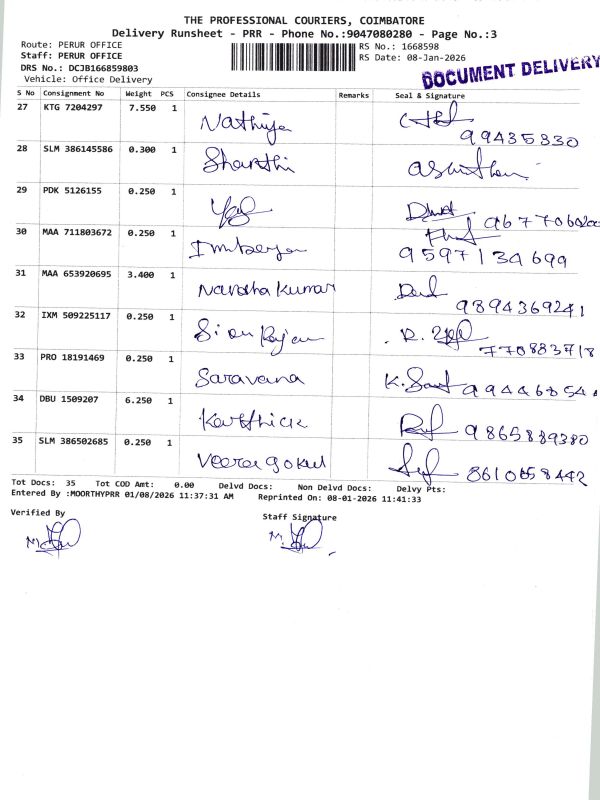 THE PROFESSIONAL COURIERS, COIMBATORE
Delivery Runsheet - PRR - Phone No.:9047080280 - Page No.:3
Route: PERUR OFFICE
Staff: PERUR OFFICE
DRS No.: DCJB166859803
Vehicle: Office Delivery
RS No.: 1668598
RS Date: 08-Jan-2026
DOCUMENT DELIVERY
S No Consignment No Weight PCS Consignee Details Remarks Seal & Signature
27 KTG 7204297 7.550 1 Nathiya 99435330
28 SLM 386145586 0.300 1 Sharthi
29 PDK 5126155 0.250 1
30 MAA 711803672 0.250 1 9597134699
31 MAA 653920695 3.400 1 Nandha Kumar 9894369241
32 IXM 509225117 0.250 1 770883718
33 PRO 18191469 0.250 1 Saravana
34 DBU 1509207 6.250 1 Karthick 9865889380
35 SLM 386502685 0.250 1 Veera gokul 8610658442
Tot Docs: 35 Tot COD Amt: 0.00 Delvd Docs: Non Delvd Docs: Delvy Pts:
Entered By :MOORTHYPRR 01/08/2026 11:37:31 AM Reprinted On: 08-01-2026 11:41:33
Verified By
Staff Signature